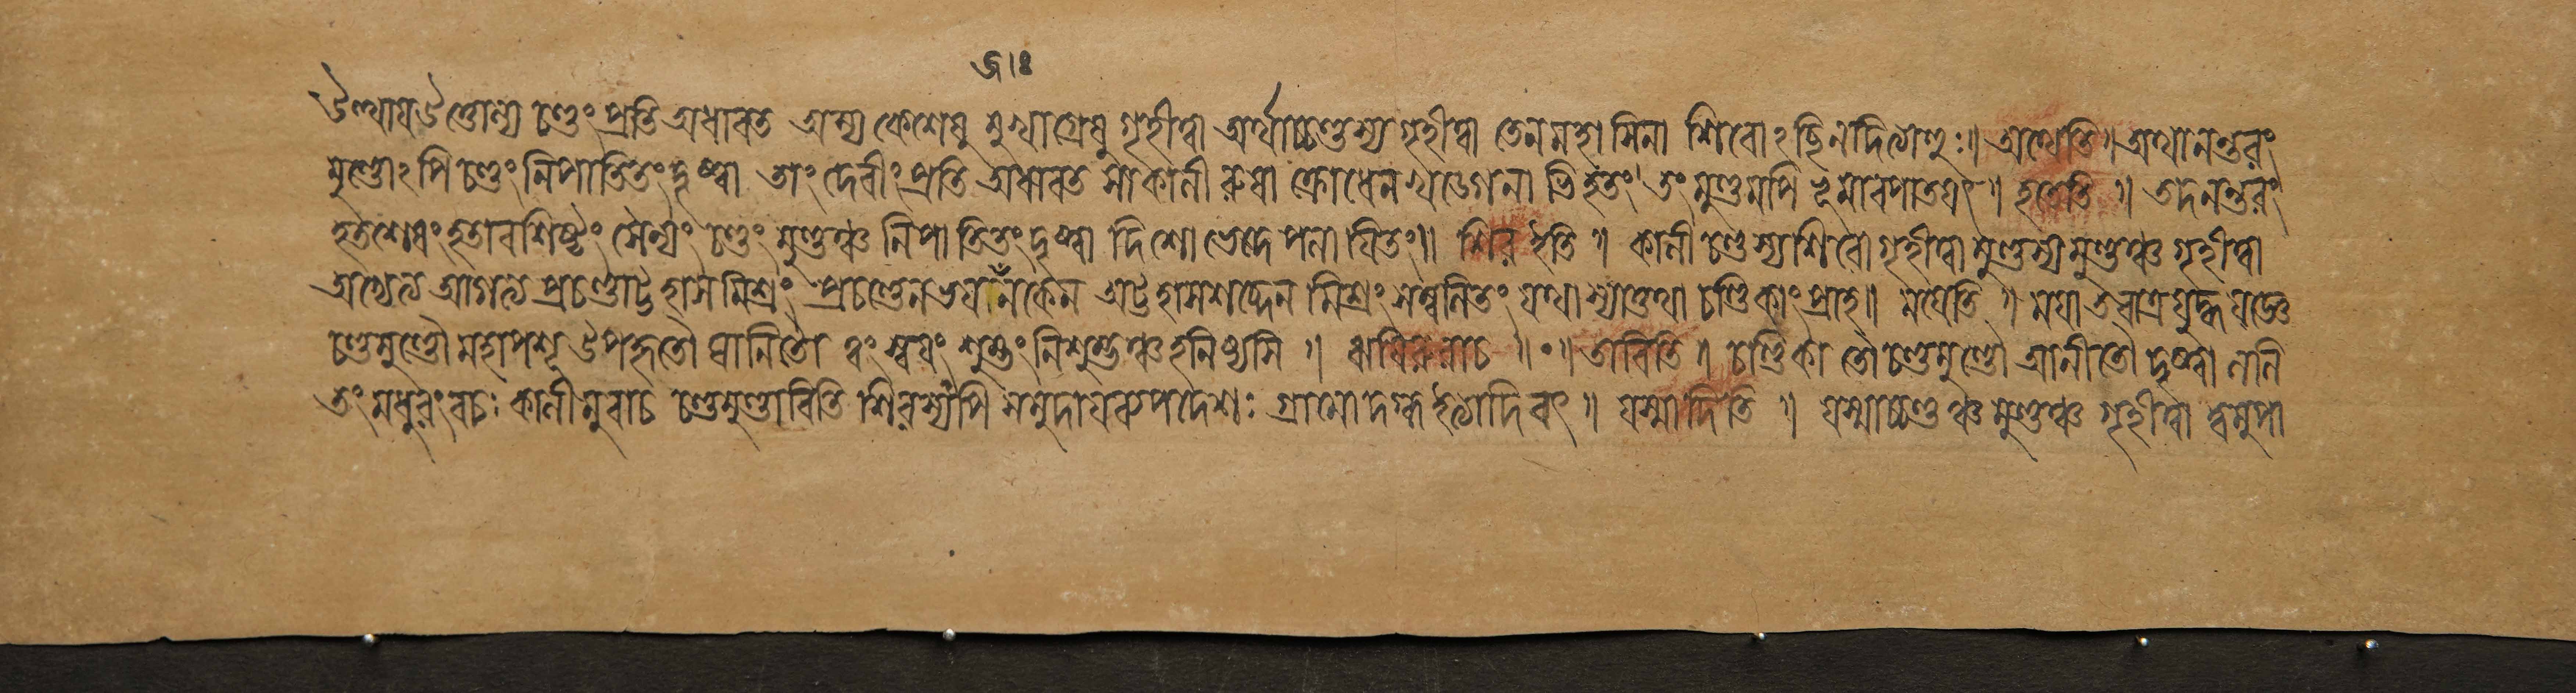 ৬।ঃ
উত্থায উত্তোল্য চণ্ডং প্রতি অধাবত অস্য কেশেষু মুখাগ্রেষু গৃহীত্বা অর্থাচ্চণ্ডস্য গৃহীত্বা তেন মহাসিনা শিরোঽছিনদিত্যেশুঃ॥ অথেতি॥ অথানন্তরং
মুণ্ডোঽপি চণ্ডং নিপাতিতং দৃষ্ট্বা তাং দেবীং প্রতি অধাবত সা কালী রুষা ক্রোধেন খড্গেনাভিহতং তং মুণ্ডমপি ভূমাবপাতযৎ॥ হতেতি॥ তদনন্তরং
হতশেষং হতাবশিষ্টং সৈন্যং চণ্ডং মুণ্ডঞ্চ নিপাতিতং দৃষ্ট্বা দিশো ভেদে পলাযিতং॥ শির ইতি॥ কালী চণ্ডস্য শিরো গৃহীত্বা মুণ্ডস্য মুণ্ডঞ্চ গৃহীত্বা
অভ্যেত্য আগত্য প্রচণ্ডাট্টহাসমিশ্রং প্রচণ্ডেন ভযানকেন অট্টহাসশব্দেন মিশ্রং সম্বলিতং যথা স্যাত্তথা চণ্ডিকাং প্রাহ॥ মযেতি॥ মযা তবাত্র যুদ্ধযজ্ঞে
চণ্ডমুণ্ডৌ মহাপশূ উপহৃতৌ ঘানিতৌ ত্বং স্বযং শুম্ভং নিশুম্ভঞ্চ হনিষ্যসি॥ ঋষিরুবাচ॥০॥ তাবিতি॥ চণ্ডিকা তৌ চণ্ডমুণ্ডৌ আনীতৌ দৃষ্ট্বা ললি
তং মধুরং বচঃ কালীমুবাচ চণ্ডমুণ্ডাবিতি শিরস্যপি সমুদাযব্যপদেশঃ গ্রামো দগ্ধ ইত্যাদিবৎ॥ যস্মাদিতি॥ যস্মাচ্চণ্ডঞ্চ মুণ্ডঞ্চ গৃহীত্বা ত্বমুপা